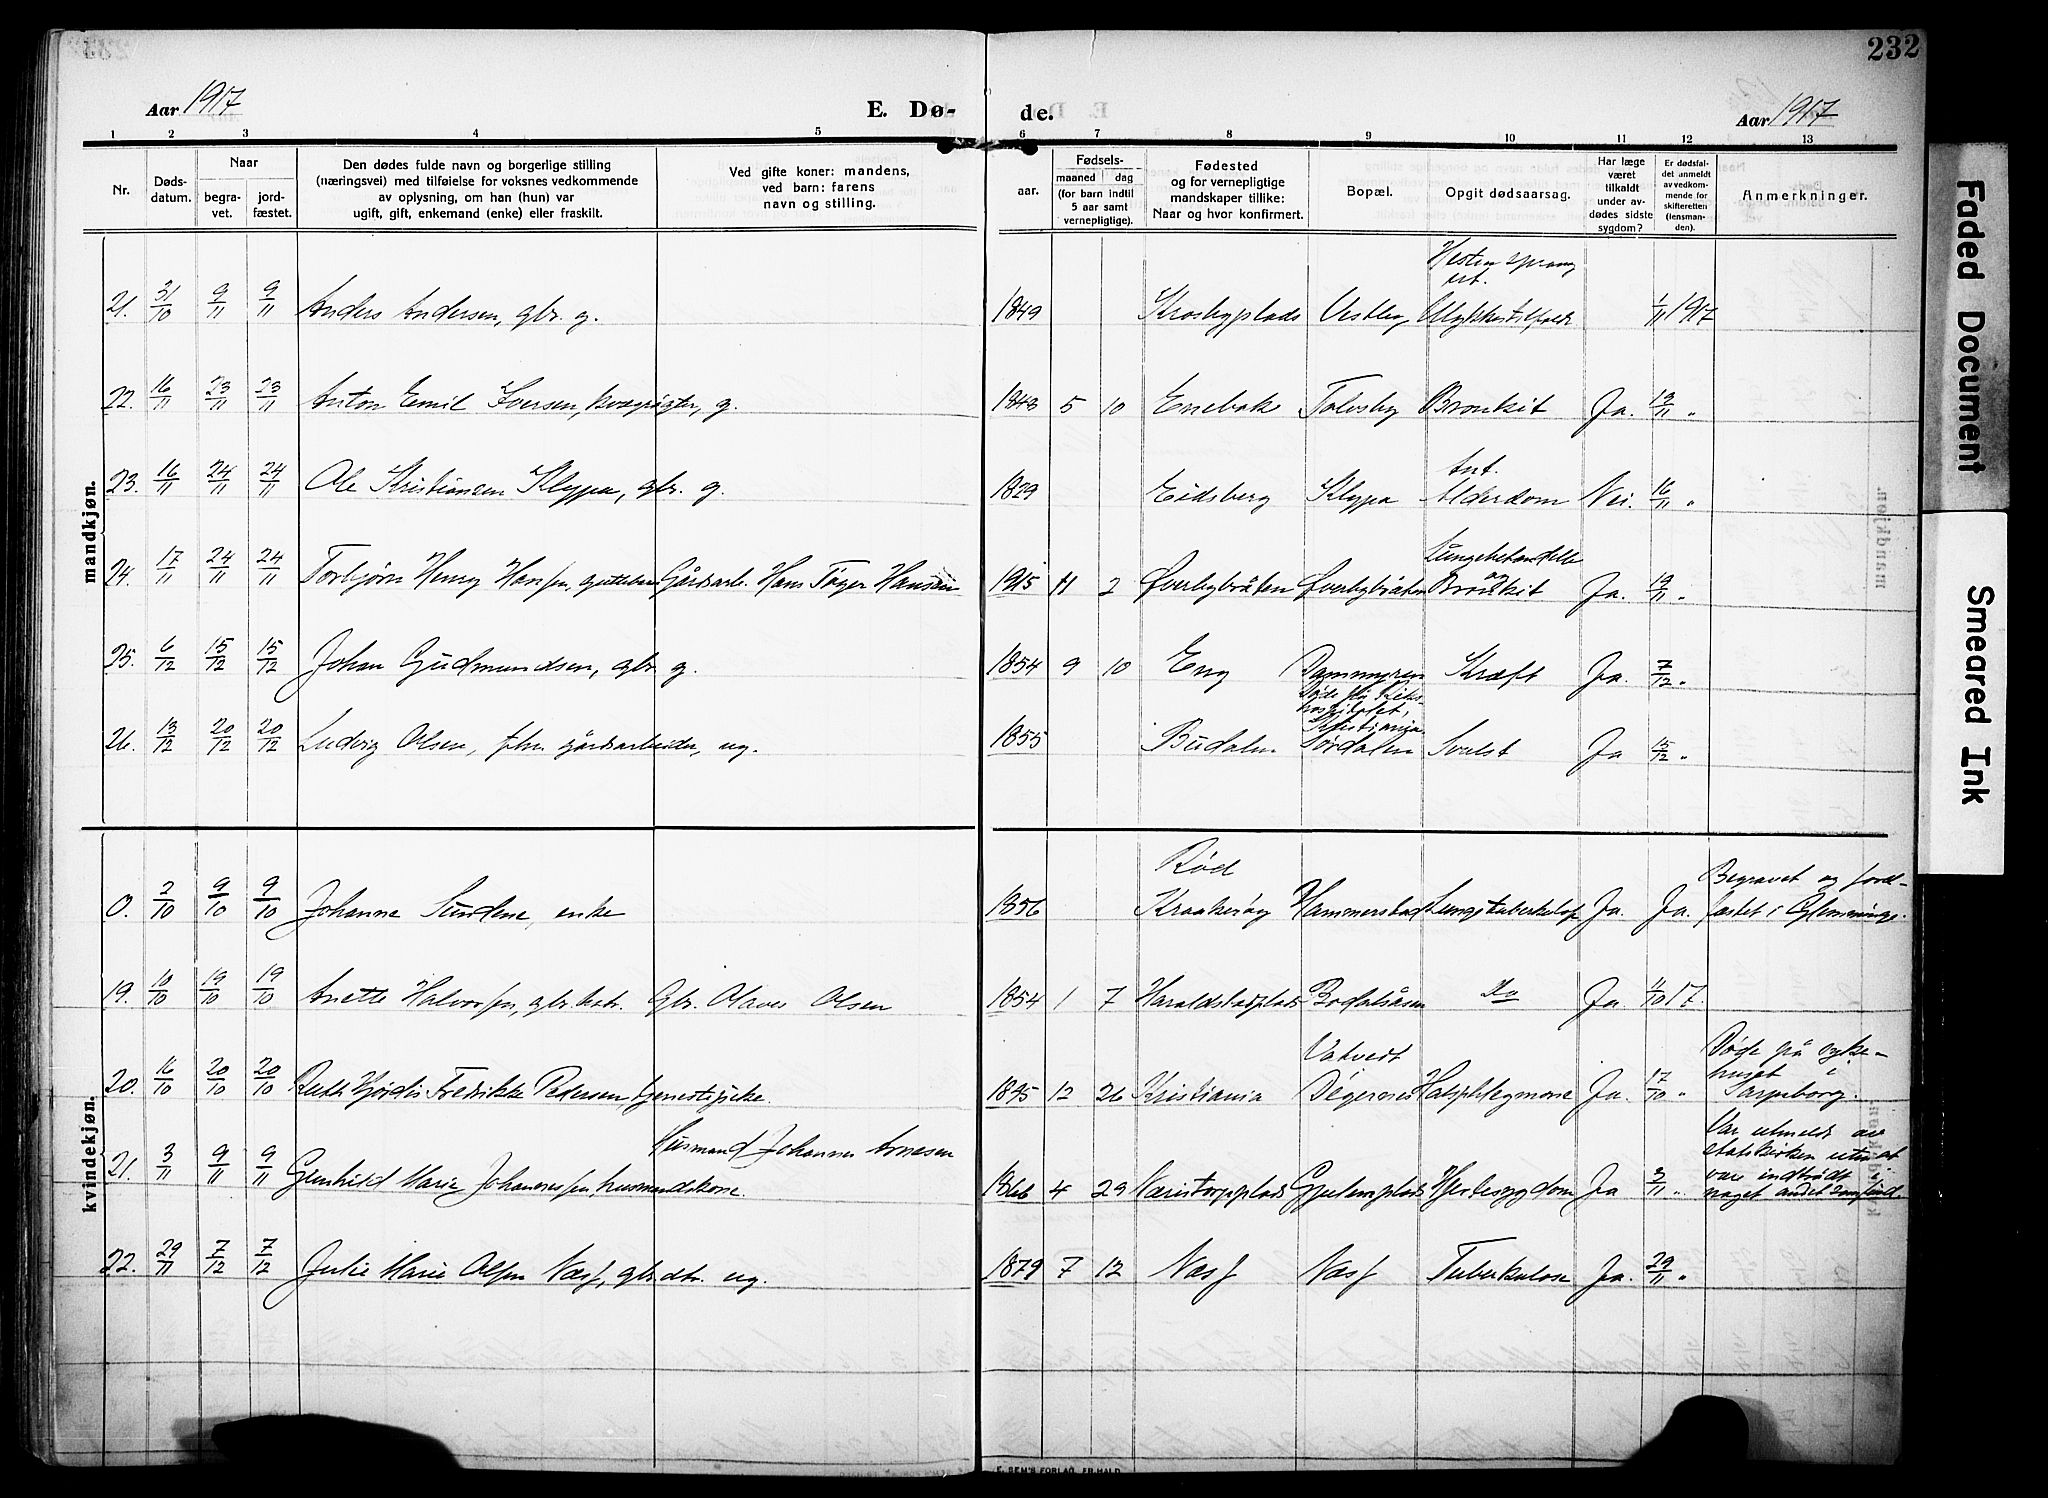 232
Aar 1917
E. Dø-
de.
Aar 1917
1 2 3 4 5 6 7 8 9 10 11 12 13
Nr.
Døds-
datum.
Naar
begra-
vet.
jord-
fæstet.
Den dødes fulde navn og borgerlige stilling
(næringsvei) med tilføielse for voksnes vedkommende
av oplysning, om han (hun) var
ugift, gift, enkemand (enke) eller fraskilt.
Ved gifte koner: mandens,
ved barn: farens
navn og stilling.
aar.
Fødsels-
maaned dag
(for barn indtil
5 aar samt
vernepligtige).
Fødested
og for vernepligtige
mandskaper tillike:
Naar og hvor konfirmert.
Bopæl.
Opgit dødsaarsag.
Har læge
været
tilkaldt
under av-
dødes sidste
sygdom?
Er dødsfal-
det anmeldt
av vedkom-
mende for
skifteretten
(lensman-
den).
Anmerkninger.
mandkjøn.
Hesten sprang
ut.
21. 31/10 9/11 9/11 Anders Andersen, gbr. g. 1849 Krosbyplads Vestby Ulykkestilfælde 1/11 1917
22. 16/11 23/11 23/11 Anton Emil Iversen, kvægrøgter, g. 1843 5 10 Enebak Tolvsby Bronkit Ja. 19/11 "
Ant.
23. 16/11 24/11 24/11 Ole Kristiansen Klypa, gbr. g. 1829 Eidsberg Klypa Alderdom Nei. 16/11 "
Lungebetændelse
og
24. 17/11 24/11 24/11 Torbjørn Henry Hansen, Gårdsarb. Hans Tøger Hansen 1915 11 2 Øverbybråten Øverbybråten Bronkit Ja. 19/11 "
25. 6/12 15/12 15/12 Johan Gudmundsen, gbr. g. 1854 9 10 Eng Dammyren Kræft Ja. 7/12 "
Døde på Riks-
hospitalet,
Kristiania
26. 13/12 20/12 20/12 Ludvig Olsen, fhv. gårdsarbeider, ug. 1855 Budalen Sørdalen Svulst Ja 15/12 "
kvindekjøn.
Rød
Begravet og jord-
0. 2/10 9/10 9/10 Johanne Sundene, enke 1856 Kraakerøy Hammerstad Lungetuberkulose Ja. Ja. fæstet i Glemminge.
19. 10/10 19/10 19/10 Anette Halvorsen, gbr.kstr. Gbr. Olaves Olsen 1854 1 7 Haraldstadplads Bodalsåsen Do Ja. 11/10 17.
Vatvedt
Døde på syke-
huset i
20. 16/10 20/10 20/10 Ruth Hjørdis Fredrikke Pedersen, tjenestepike. 1895 12 26 Kristiania Degernes Halsphlegmone Ja. 17/10 " Sarpsborg.
Husmand Johannes Arnesen
Var utmeldt av
statskirken uten at
21. 3/11 9/11 9/11 Gunhild Marie Johannessen, husmandskone. 1866 4 29 Næristorpplads Gjulemplads Hjertesygdom Ja 3/11 " være indtrådt i
noget andet samfund.
22. 29/11 7/12 7/12 Julie Marie Olsen Næss, gbr.dtr. ug. 1879 7 12 Næss Næss Tuberkulose Ja. 29/11 "
E. SEM'S FORLAG, FR.HALD
Faded Document
Smeared Ink